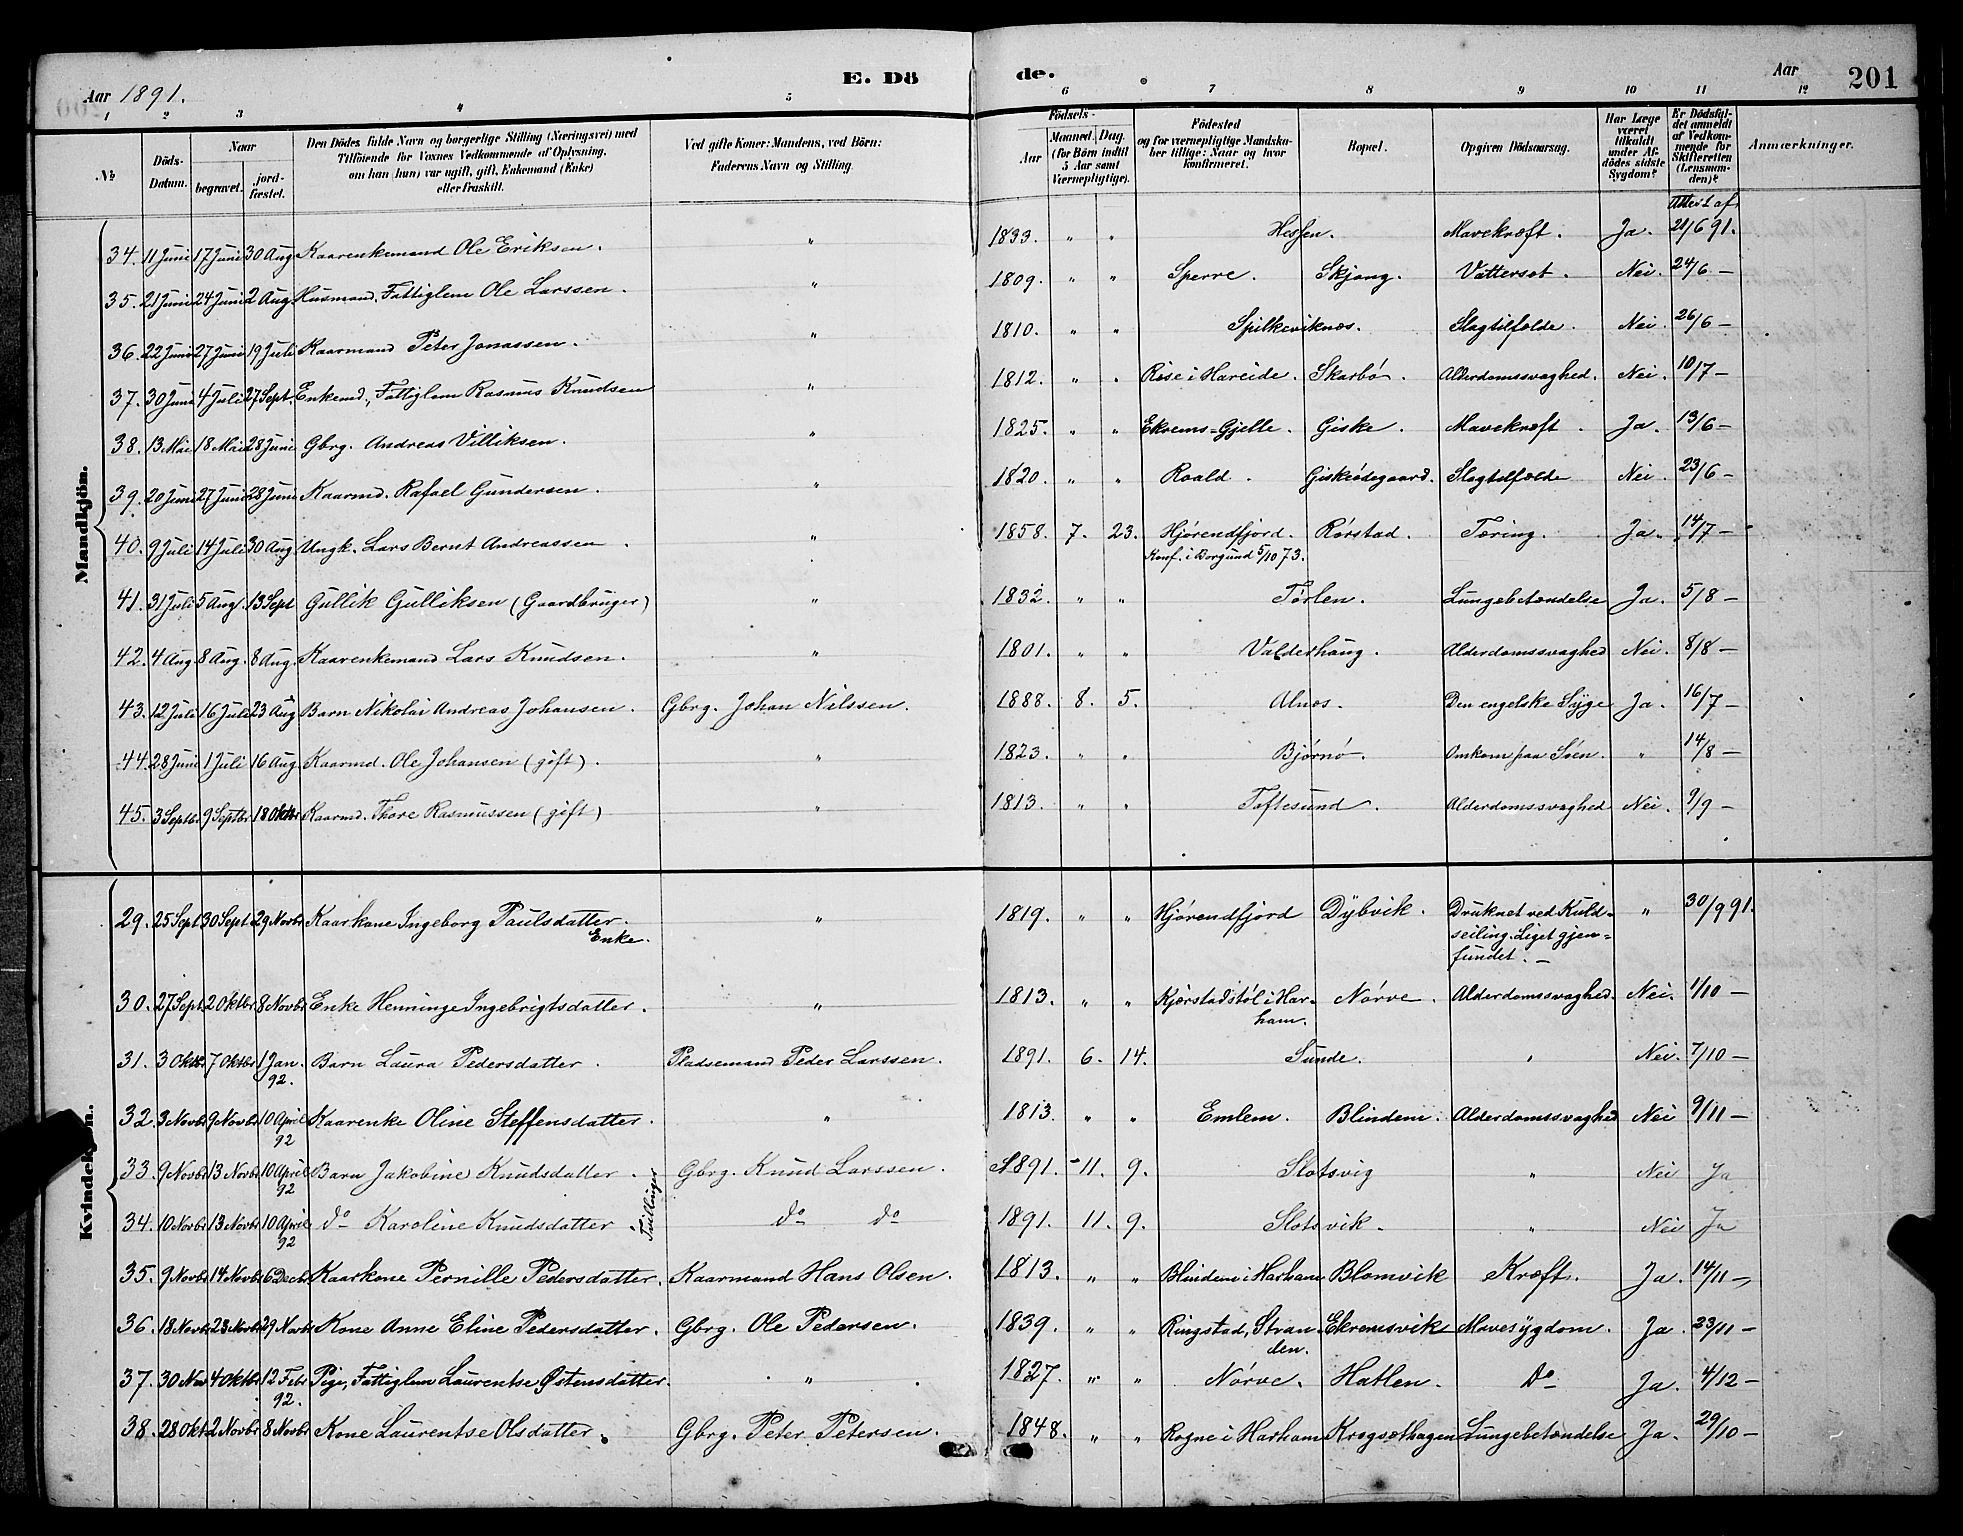 Aar 1891. E. Dö de. Aar 201
1 2 3 4 5 6 7 8 9 10 11 12
№ Döds-Datum. Naar begravet. jord-fæstet. Den Dödes fulde Navn og borgerlige Stilling (Næringsvei) med Tilföiende for Voxnes Vedkommende af Oplysning, om han (hun) var ugift, gift, Enkemand (Enke) eller fraskilt. Ved gifte Koner: Mandens, ved Börn: Faderens Navn og Stilling. Födsels- Aar Maaned. Dag. (for Börn indtil 5 Aar samt Værnepligtige). Födested og for værnepligtige Mandska-ber tillige: Naar og hvor konfirmeret. Bopæl. Opgiven Dödsaarsag. Har Læge været tilkaldt under Af-dödes sidste Sygdom? Er Dödsfal-det anmeldt af Vedkom-mende for Skifteretten (Lensman-den)? Anmærkninger.
Mandkjön.
Attest af
34. 11 Juni 17 Juni 30 Aug Kaarenkemand Ole Eriksen. " 1833. " " Hessen. Mavekræft. Ja. 21/6 91.
35. 21 Juni 24 Juni 2 Aug Husmand, Fattiglem Ole Larssen. " 1809. " " Sperre. Skjong. Vattersot. Nei. 24/6 –
36. 22 Juni 27 Juni 19 Juli Kaarmand Peter Jonassen. " 1810. " " Spilkeviknæs. Slagtilfælde. Nei. 26/6 –
37. 30 Juni 4 Juli 27 Sept. Enkemd., Fattiglem Rasmus Knudsen " 1812. " " Rise i Hareide. Skarbø. Alderdomssvaghed. Nei. 10/7 –
38. 13 Mai 18 Mai 28 Juni Gbrg. Andreas Villiksen. " 1825. " " Ekrems-Gjelle. Giske. Mavekræft. Ja. 13/6 –
39. 20 Juni 27 Juni 28 Juni Kaarmd. Rafael Gundersen. " 1820. " " Roald. Giskeødegaard. Slagtilfælde Nei. 23/6 –
40. 9 Juli 14 Juli 30 Aug Ungk. Lars Bernt Andreassen. " 1858. 7. 23. Hjørendfjord. Rørstad. Tæring. Ja. 14/7 –
Konf. i Borgund 5/10 73.
41. 31 Juli 5 Aug. 13 Sept Gullik Gulliksen (Gaardbruger) " 1832. " " Tørlen. Lungebetændelse Ja. 5/8 –
42. 4 Aug 8 Aug. 8 Aug. Kaarenkemand Lars Knudsen. " 1801. " " Valderhaug. Alderdomssvaghed Nei. 8/8 –
43. 12 Juli 16 Juli 23 Aug Barn Nikolai Andreas Johansen. Gbrg. Johan Nilssen. 1888. 8. 5. Alnes. Den engelske Syge Ja. 16/7 –
44. 28 Juni 1 Juli 16 Aug. Kaarmd. Ole Johansen (gift). " 1823. " " Bjørnø. Omkom paa Søen. " 14/8 –
45. 3 Septbr 9 Septbr 18 Oktbr Kaarmd. Thore Rasmussen (gift) " 1813. " " Toftesund. Alderdomssvaghed Nei. 9/9 –
Kvindekjön.
29. 25 Sept 30 Sept 29 Novbr Kaarkone Ingeborg Paulsdatter. " 1819. " " Hjørendfjord Dybvik. Druknet ved Kuld- " 30/9 91.
Enke. seiling. Liget gjen-
fundet. –
30. 27 Sept 2 Oktbr 8 Novbr Enke Henninge Ingebrigtsdatter. " 1813. " " Kjerstadstøl i Har- Nørve. Alderdomssvaghed. Nei. 1/10 –
ham.
31. 3 Oktbr 7 Oktbr 1 Jan. Barn Laura Pedersdatter. Pladsemand Peder Larssen. 1891. 6. 14. Sunde. " Nei. 7/10 –
92.
32. 3 Novbr 9 Novbr 10 April Kaarenke Oline Steffensdatter. " 1813. " " Emlem. Blindem. Alderdomssvaghed Nei 9/11 –
92
33. 9 Novbr 13 Novbr 10 April Barn Jakobine Knudsdatter. Gbrg. Knud Larssen. 1891. 11. 9. Slotsvig " Nei Ja
92 Tvillinger
34. 10 Novbr 13 Novbr 10 April do Karoline Knudsdatter do do 1891. 11. 9. Slotsvik. " Nei Ja
92
35. 9 Novbr 14 Novbr 6 Decbr Kaarkone Pernille Pedersdatter. Kaarmand Hans Olsen. 1813. " " Blindem i Harham Blomvik Kræft. Ja. 14/11 –
36. 18 Novbr 23 Novbr 29 Novbr Kone Anne Eline Pedersdatter. Gbrg. Ole Pedersen. 1839. " " Ringstad, Stran Ekremsvik Mavesygdom. Ja. 23/11 –
den.
37. 30 Nov 4 Oktbr 12 Febr Pige, Fattiglem Laurentse Østensdatter. " 1827. " " Nørve. Hatlen. Do Ja. 4/12 –
92.
38. 28 Okt 2 Novbr 8 Novbr Kone Laurentse Olsdatter. Gbrg. Peter Petersen. 1848. " " Rogne i Harham Krogsethagen Lungebetændelse Ja. 29/10 –